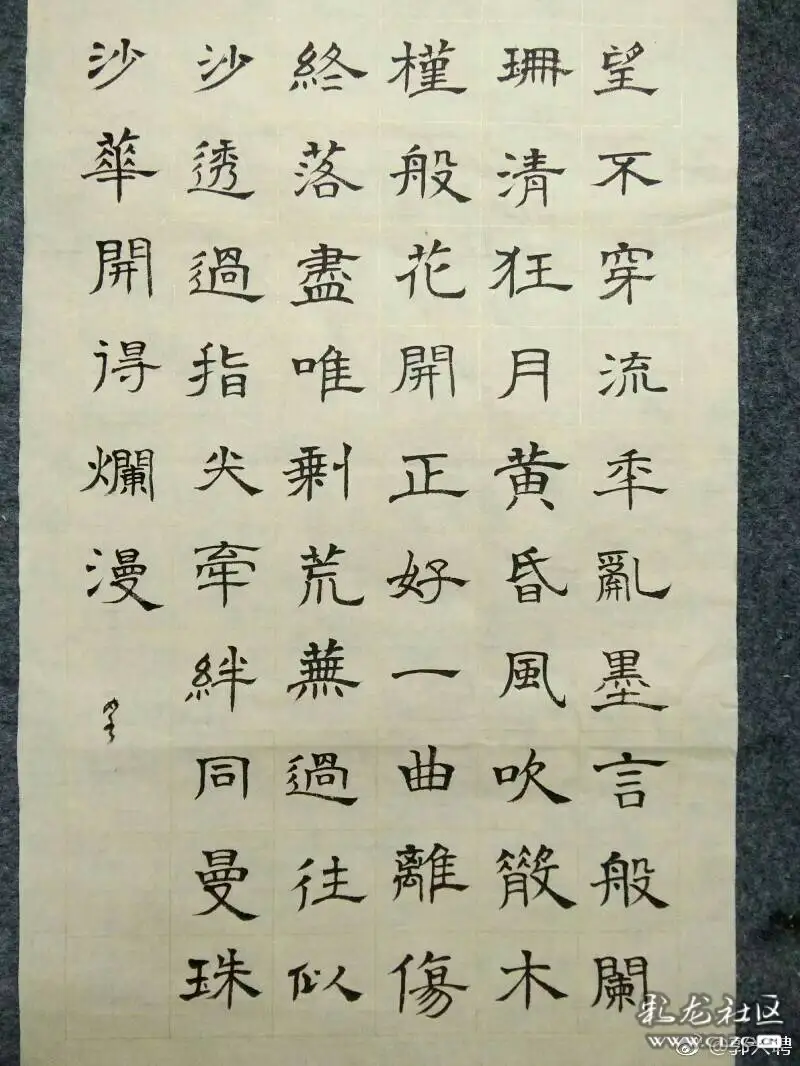 望不穿流年亂墨言般闌
珊清狂月黄昏風吹散木
槿般花開正好一曲離傷
終落盡唯剩荒蕪過往似
沙透過指尖牽絆同曼珠
沙華開得爛漫
彩龙社区
www.clzg.cn
@郭六聘